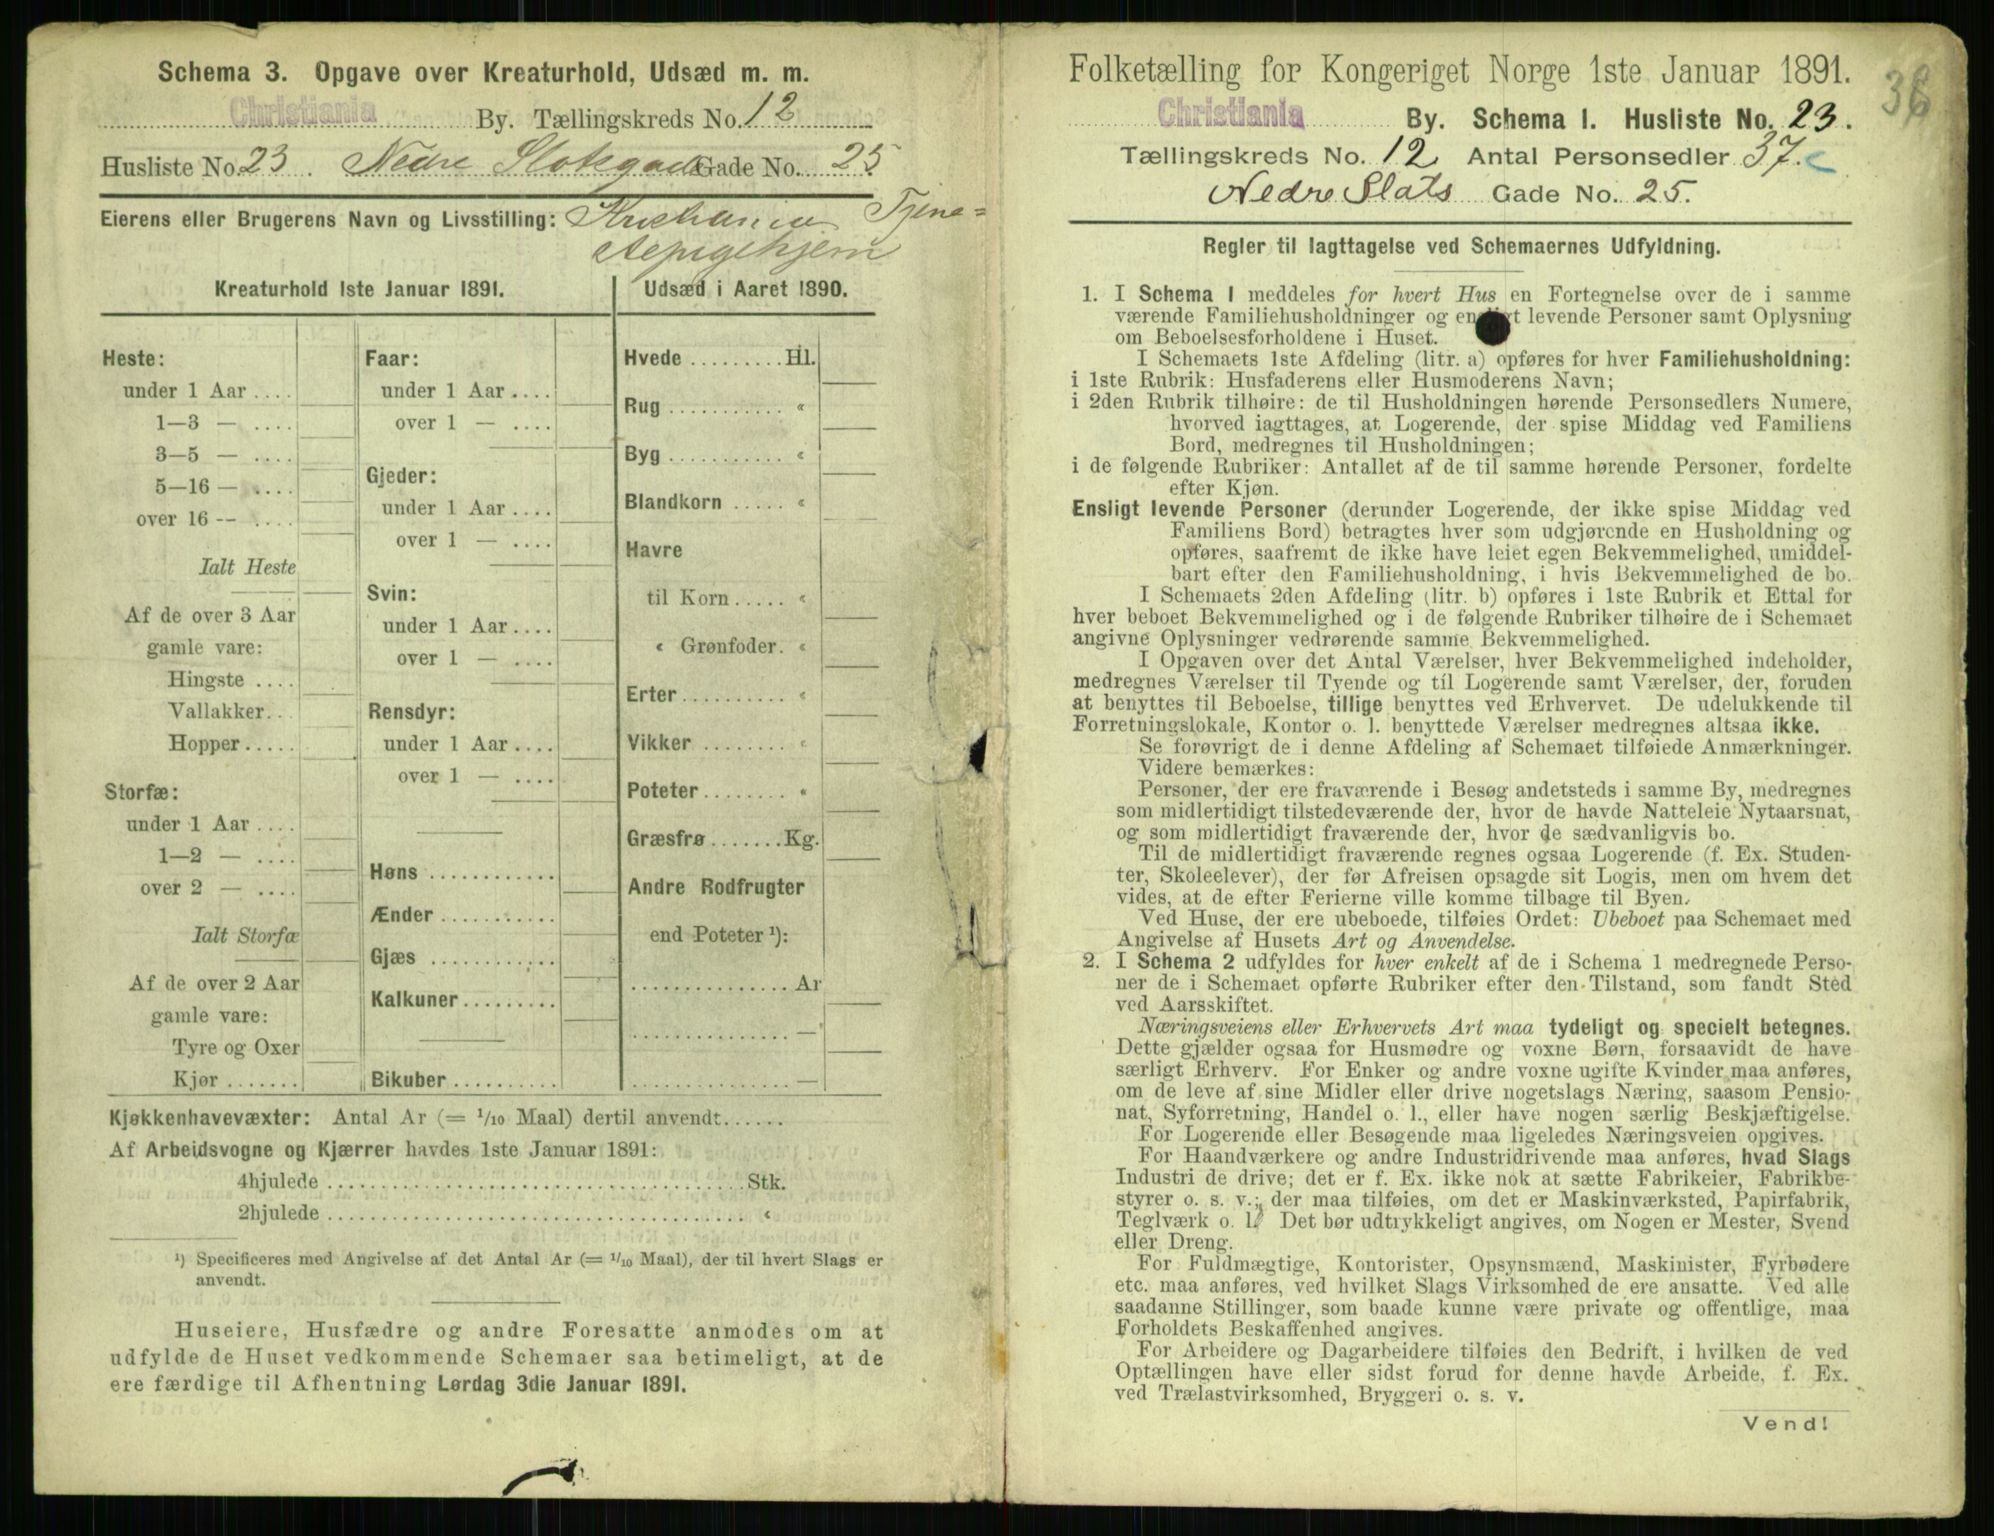 Schema 3. Opgave over Kreaturhold, Udsæd m. m.
Christiania By. Tællingskreds No. 12
Husliste No. 23. Nedre Slotsgade Gade No. 25
Eierens eller Brugerens Navn og Livsstilling: Kristiania Tjene-
stepigehjem
Kreaturhold 1ste Januar 1891.
Heste:
under 1 Aar ....
1—3 — ....
3—5 — ....
5—16 — ....
over 16 -- ....
Ialt Heste
Af de over 3 Aar
gamle vare:
Hingste ....
Vallakker...
Hopper.....
Storfæ:
under 1 Aar ....
1—2 — ....
over 2 — ....
Ialt Storfæ
Af de over 2 Aar
gamle vare:
Tyre og Oxer
Kjør .......
Faar:
under 1 Aar ....
over 1 — ....
Gjeder:
under 1 Aar ....
over 1 — ....
Svin:
under 1 Aar ....
over 1 — ....
Rensdyr:
under 1 Aar ....
over 1 — ....
Høns ............
Ænder ...........
Gjæs ............
Kalkuner.........
Bikuber ..........
Udsæd i Aaret 1890.
Hvede .........Hl.
Rug ........... «
Byg ........... «
Blandkorn ..... «
Havre
til Korn ..... «
« Grønfoder. «
Erter .......... «
Vikker ........ «
Poteter ........ «
Græsfrø .......Kg.
Andre Rodfrugter
end Poteter ¹):
............... Ar
............... —
............... —
Kjøkkenhavevæxter: Antal Ar (= 1/10 Maal) dertil anvendt......
Af Arbeidsvogne og Kjærrer havdes 1ste Januar 1891:
4hjulede ........................................ Stk.
2hjulede ........................................ «
¹) Specificeres med Angivelse af det Antal Ar (= 1/10 Maal), der til hvert Slags er
anvendt.
Huseiere, Husfædre og andre Foresatte anmodes om at
udfylde de Huset vedkommende Schemaer saa betimeligt, at de
ere færdige til Afhentning Lørdag 3die Januar 1891.
Folketælling for Kongeriget Norge 1ste Januar 1891.
36
Christiania By. Schema I. Husliste No. 23.
Tællingskreds No. 12 Antal Personsedler 37.
Nedre Slots Gade No. 25.
Regler til Iagttagelse ved Schemaernes Udfyldning.
1. I Schema I meddeles for hvert Hus en Fortegnelse over de i samme
værende Familiehusholdninger og ensligt levende Personer samt Oplysning
om Beboelsesforholdene i Huset.
I Schemaets 1ste Afdeling (litr. a) opføres for hver Familiehusholdning:
i 1ste Rubrik: Husfaderens eller Husmoderens Navn;
i 2den Rubrik tilhøire: de til Husholdningen hørende Personsedlers Numere,
hvorved iagttages, at Logerende, der spise Middag ved Familiens
Bord, medregnes til Husholdningen;
i de følgende Rubriker: Antallet af de til samme hørende Personer, fordelte
efter Kjøn.
Ensligt levende Personer (derunder Logerende, der ikke spise Middag ved
Familiens Bord) betragtes hver som udgjørende en Husholdning og
opføres, saafremt de ikke have leiet egen Bekvemmelighed, umiddel-
bart efter den Familiehusholdning, i hvis Bekvemmelighed de bo.
I Schemaets 2den Afdeling (litr. b) opføres i 1ste Rubrik et Ettal for
hver beboet Bekvemmelighed og i de følgende Rubriker tilhøire de i Schemaet
angivne Oplysninger vedrørende samme Bekvemmelighed.
I Opgaven over det Antal Værelser, hver Bekvemmelighed indeholder,
medregnes Værelser til Tyende og til Logerende samt Værelser, der, foruden
at benyttes til Beboelse, tillige benyttes ved Erhvervet. De udelukkende til
Forretningslokale, Kontor o. l. benyttede Værelser medregnes altsaa ikke.
Se forøvrigt de i denne Afdeling af Schemaet tilføiede Anmærkninger.
Videre bemærkes:
Personer, der ere fraværende i Besøg andetsteds i samme By, medregnes
som midlertidigt tilstedeværende der, hvor de havde Natteleie Nytaarsnat,
og som midlertidigt fraværende der, hvor de sædvanligvis bo.
Til de midlertidigt fraværende regnes ogsaa Logerende (f. Ex. Studen-
ter, Skoleelever), der før Afreisen opsagde sit Logis, men om hvem det
vides, at de efter Ferierne ville komme tilbage til Byen.
Ved Huse, der ere ubeboede, tilføies Ordet: Ubeboet paa Schemaet med
Angivelse af Husets Art og Anvendelse.
2. I Schema 2 udfyldes for hver enkelt af de i Schema 1 medregnede Perso-
ner de i Schemaet opførte Rubriker efter den Tilstand, som fandt Sted
ved Aarsskiftet.
Næringsveiens eller Erhvervets Art maa tydeligt og specielt betegnes.
Dette gjælder ogsaa for Husmødre og voxne Børn, forsaavidt de have
særligt Erhverv. For Enker og andre voxne ugifte Kvinder maa anføres,
om de leve af sine Midler eller drive nogetslags Næring, saasom Pensio-
nat, Syforretning, Handel o. l., eller have nogen særlig Beskjæftigelse.
For Logerende eller Besøgende maa ligeledes Næringsveien opgives.
For Haandværkere og andre Industridrivende maa anføres, hvad Slags
Industri de drive; det er f. Ex. ikke nok at sætte Fabrikeier, Fabrikbe-
styrer o. s. v.; der maa tilføies, om det er Maskinværksted, Papirfabrik,
Teglværk o. l. Det bør udtrykkeligt angives, om Nogen er Mester, Svend
eller Dreng.
For Fuldmægtige, Kontorister, Opsynsmænd, Maskinister, Fyrbødere
etc. maa anføres, ved hvilket Slags Virksomhed de ere ansatte. Ved alle
saadanne Stillinger, som baade kunne være private og offentlige, maa
Forholdets Beskaffenhed angives.
For Arbeidere og Dagarbeidere tilføies den Bedrift, i hvilken de ved
Optællingen have eller sidst forud for denne havde Arbeide, f. Ex.
ved Trælastvirksomhed, Bryggeri o. s. v.
Vend!